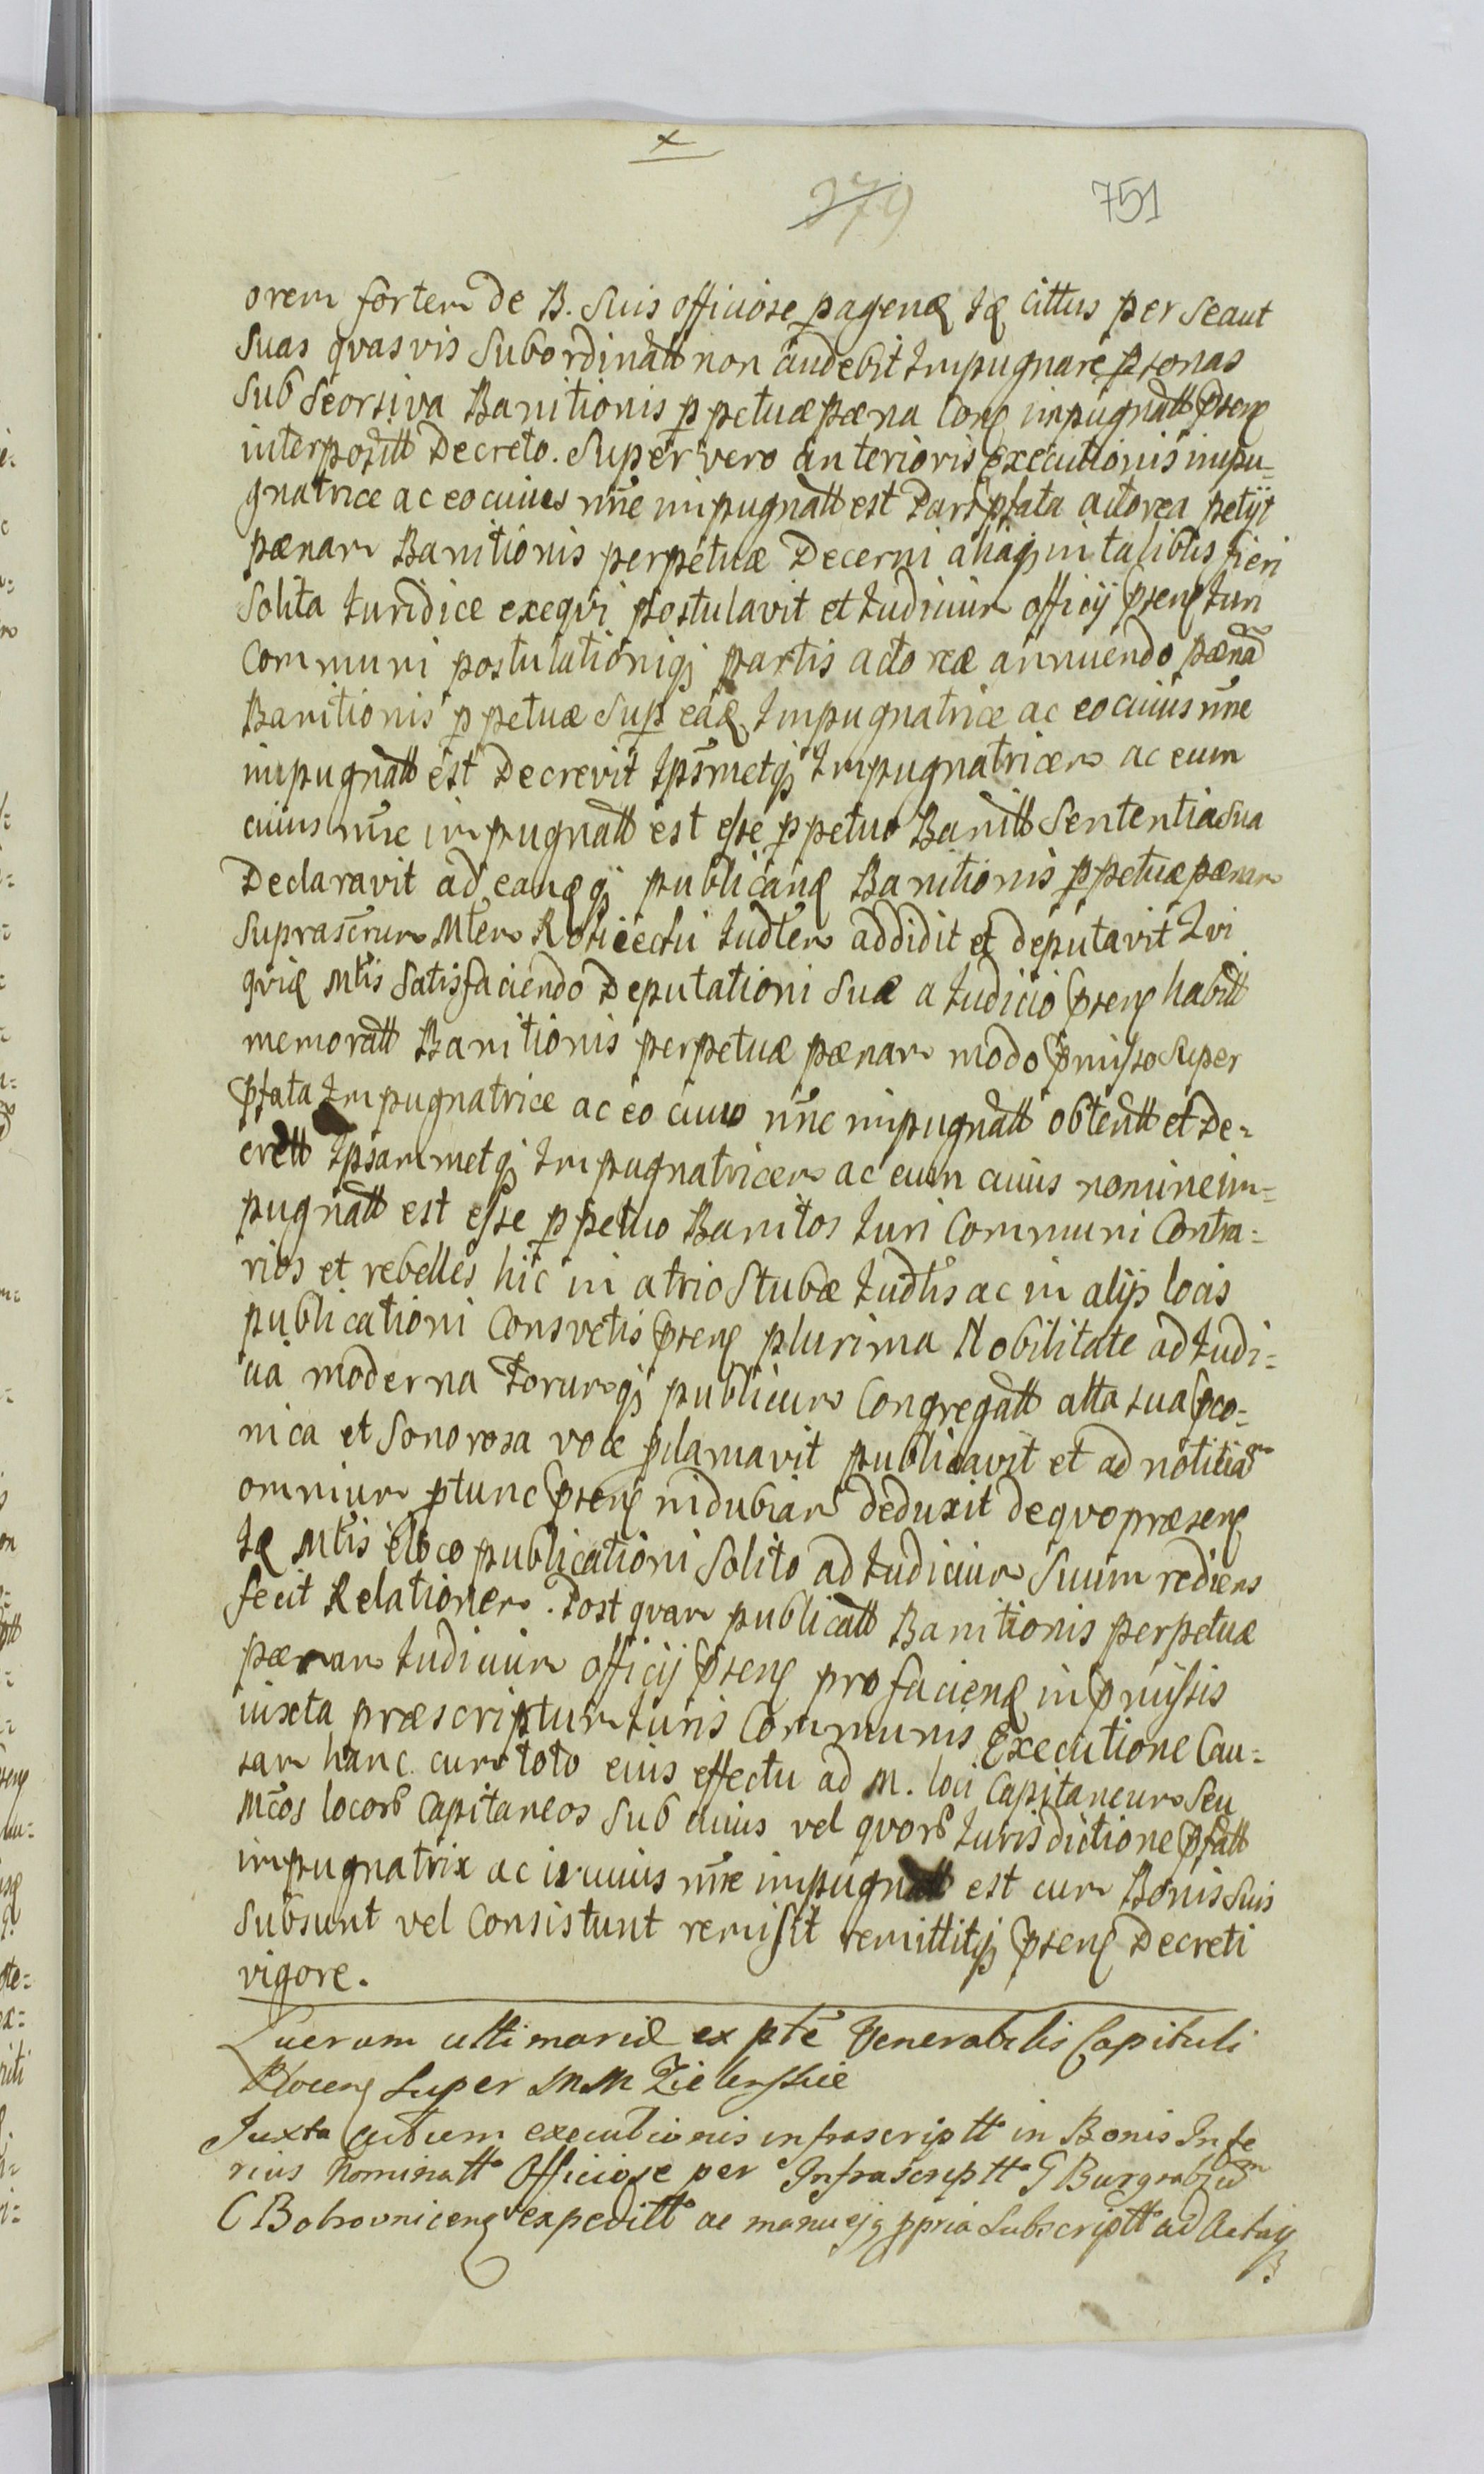 x
379 751
orem fortem de B. Suis officiose pagenđ Iđ cittus per se aut
Suas qvasvis Subordinatt non audebit Impugnare psonas
Sub Seorsiva Banitionis ppetuæ pæna Conſ impugnatt pſenſ
interpositt Decreto. Super vero anterioris executionis impu=
gnatrice ac eo cuius nn̄e impugnatt est Pars pfata actorea petijt
pænam Banitionis perpetuæ Decerni aliaqꝫ in talibus fieri
Solita Iuridice exeqvi postulavit et Iudicium officij pſenſ Iuri
Communi postulationiqꝫ partis actoreæ annuendo pænā
Banitionis ppetuæ Sup eađ Impugnatrice ac eo cuius nn̄e
impugnatt est Decrevit Ips̄metqꝫ Impugnatricem ac eum
cuius nn̄e impugnatt est esse ppetuo Banitt Sententia sua
Declaravit ad eamqꝫ publicanđ Banitionis ppetuæ pænam
suprascr̄um Mtem Rotiectu Iudtem addidit et deputavit Qvi
qviđ Mtis Satisfaciendo Deputationi Suæ a Iudicio pſenſ habitt
memoratt Banitionis perpetuæ pænam modo pmisso Super
pfata Impugnatrice ac eo cuius nn̄e impugnatt obtentt et De=
crett Ipsammetqꝫ Impugnatricem ac eum cuius nomine im=
pugnatt est esse ppetuo Banitos Iuri Communi Contra=
rios et rebelles hic in atrio Stubæ Iudtis ac in alijs locis
publicationi Consvetis pſenſ plurima Nobilitate ad Iudi=
cia moderna Forumqꝫ publicum Congregatt alta sua pco=
nica et Sonorosa voce pclamavit publicavit et ad notitiam
omnium ptunc pſenſ indubiam deduxit de qvo præsenſ
Iđ Mtis e loco publicationi Solito ad Iudicium Suum rediens
fecit Relationem. Post qvam publicatt Banitionis perpetuæ
pænam Iudicium officij pſenſ pro facienđ in pmissis
iuxta præscriptum Iuris Communis Executione Cau=
sam hanc cum toto eius effectu ad M. loci Capitaneum Seu
Mcos locorum Capitaneos Sub cuius vel qvorum Iurisdictione pfatt
impugnatrix ac is cuius nn̄e impugnatt est cum Bonis Suis
Subsunt vel Consistunt remisit remittitqꝫ pſenſ Decreti
vigore.
Lucrum ultimariæ ex pte Venerabilis Capituli
Plocenſ Super MM Zielenskie
Juxta Actum executionis infrascriptt in Bonis Infe
rius Nominatt Officiose per Infrascriptt G Burgrabium
C Bobrovnicenſ expeditt ac manu ejꝫ ppria Subscriptt ad Actaqꝫ